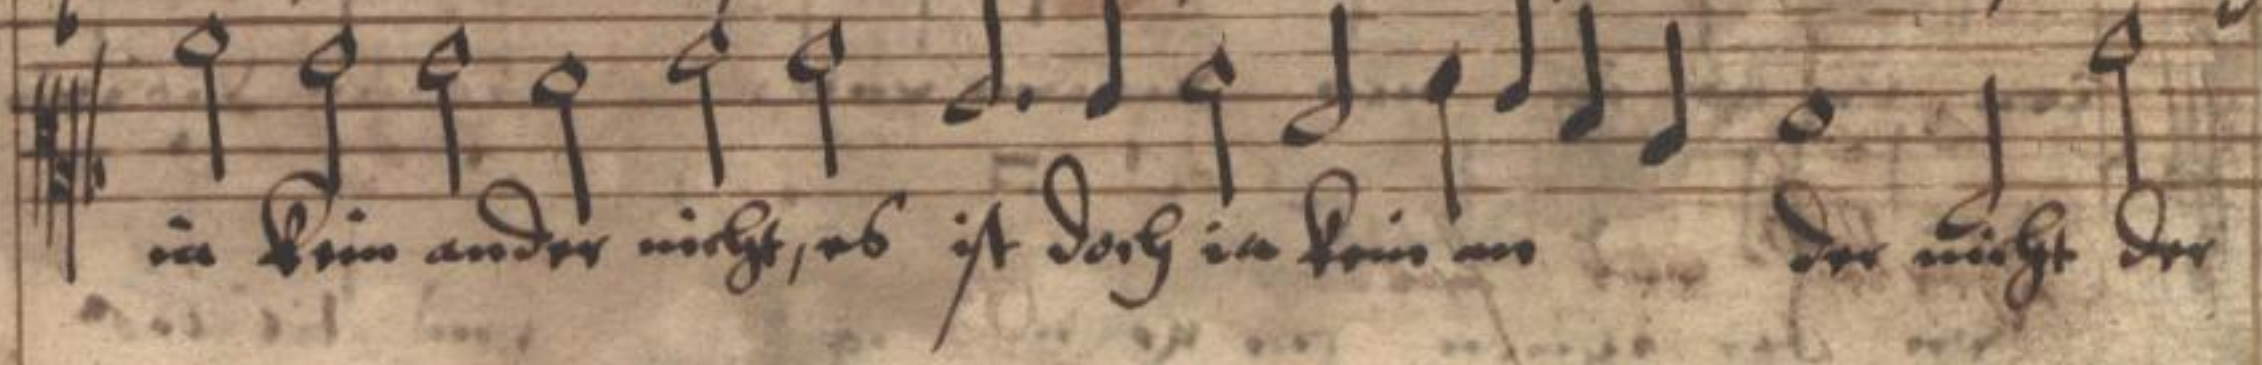 ia kein ander nicht, es ist doch ia kein an der nicht der